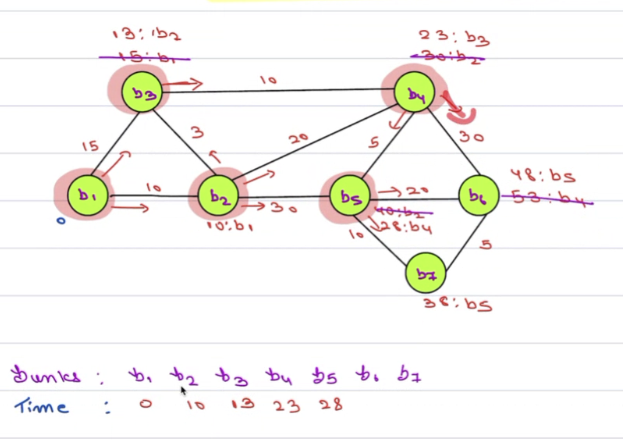 13: b2 23: b3
15: b1 30: b2
b3 10 b4
15 3 20 5 30
48: b5
b1 10 b2 30 b5 20 b6 53: b4
0 10: b1 40: b2
10 28: b4 5
b7
38: b5
Bunks : b1 b2 b3 b4 b5 b6 b7
Time : 0 10 13 23 28